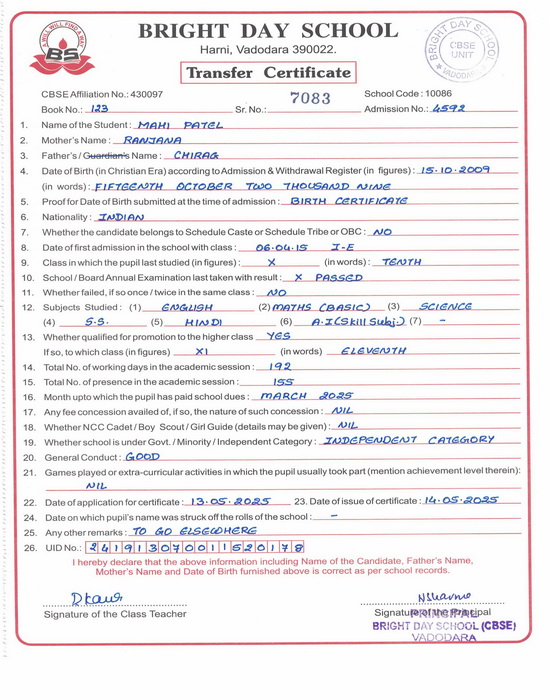 A WILL WILL FIND A WAY
BS
BRIGHT DAY SCHOOL
Harni, Vadodara 390022.
BRIGHT DAY SCHOOL
CBSE
UNIT
VADODARA
Transfer Certificate
CBSE Affiliation No.: 430097
School Code : 10086
Book No.: 123 Sr. No.: 7083 Admission No.: 4592
1. Name of the Student : MAHI PATEL
2. Mother's Name : RANJANA
3. Father's / Guardian's Name : CHIRAG
4. Date of Birth (in Christian Era) according to Admission & Withdrawal Register (in figures) : 15-10-2009
(in words) : FIFTEENTH OCTOBER TWO THOUSAND NINE
5. Proof for Date of Birth submitted at the time of admission : BIRTH CERTIFICATE
6. Nationality : INDIAN
7. Whether the candidate belongs to Schedule Caste or Schedule Tribe or OBC : NO
8. Date of first admission in the school with class : 06.04.15 I-E
9. Class in which the pupil last studied (in figures) : X (in words) : TENTH
10. School / Board Annual Examination last taken with result : X PASSED
11. Whether failed, if so once / twice in the same class : NO
12. Subjects Studied : (1) ENGLISH (2) MATHS (BASIC) (3) SCIENCE
(4) S.S. (5) HINDI (6) A.I (Skill Subj.) (7) -
13. Whether qualified for promotion to the higher class YES
If so, to which class (in figures) XI (in words) ELEVENTH
14. Total No. of working days in the academic session : 192
15. Total No. of presence in the academic session : 155
16. Month upto which the pupil has paid school dues : MARCH 2025
17. Any fee concession availed of, if so, the nature of such concession : NIL
18. Whether NCC Cadet / Boy Scout / Girl Guide (details may be given) : NIL
19. Whether school is under Govt. / Minority / Independent Category : INDEPENDENT CATEGORY
20. General Conduct : GOOD
21. Games played or extra-curricular activities in which the pupil usually took part (mention achievement level therein):
NIL
22. Date of application for certificate : 13.05.2025 23. Date of issue of certificate : 14.05.2025
24. Date on which pupil's name was struck off the rolls of the school : -
25. Any other remarks : TO GO ELSEWHERE
26. UID No.: 241913070011520178
I hereby declare that the above information including Name of the Candidate, Father's Name,
Mother's Name and Date of Birth furnished above is correct as per school records.
Signature of the Class Teacher
Signature of the Principal
PRINCIPAL
BRIGHT DAY SCHOOL (CBSE)
VADODARA